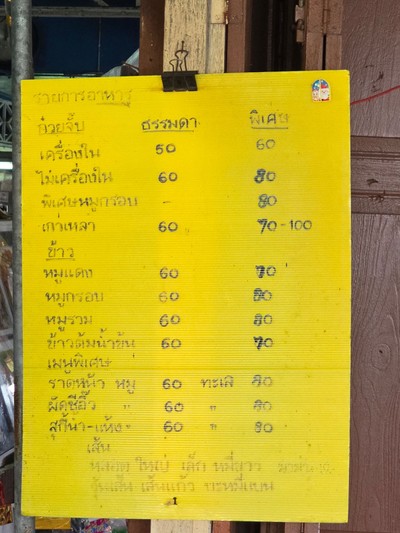 รายการอาหาร
ก๋วยจั๊บ ธรรมดา พิเศษ
เครื่องใน 50 60
ไม่เครื่องใน 60 80
พิเศษหมูกรอบ - 80
เกาเหลา 60 70-100
ข้าว
หมูแดง 60 70
หมูกรอบ 60 80
หมูรวม 60 80
ข้าวต้มน้ำข้น 60 70
เมนูพิเศษ
ราดหน้า หมู 60 ทะเล 80
ผัดซีอิ๊ว " 60 " 80
สุกี้น้ำ-แห้ง " 60 " 80
เส้น
ใหญ่ เล็ก หมี่ขาว
วุ้นเส้น เส้นแก้ว บะหมี่แบน